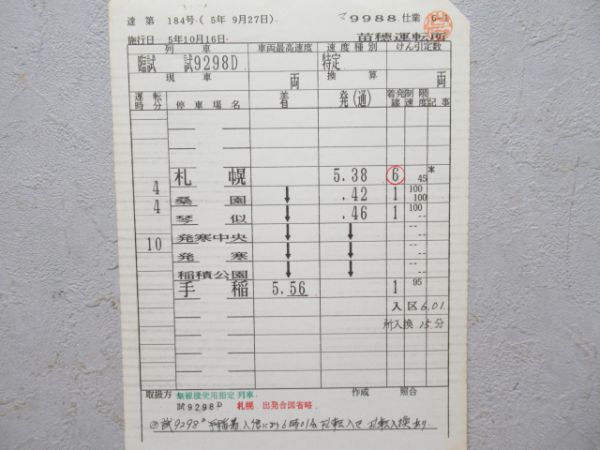 達 第 184号 ( 5年 9月27日) 〒9988. 仕業 6-1
施行日 5年10月16日 苗穂運転所
列 車 車両最高速度 速度種別 けん引定数
臨試 試9298D 特定
現 車 両 換 算 両
運転時分 停車場名 着 発(通) 着発線 制限速度 記事
札 幌 5.38 6 45
4 桑 園 ↓ .42 1 100 100
4 琴 似 ↓ .46 1 100 --
発寒中央 ↓ ↓ -- --
10 発 寒 ↓ ↓ -- --
稲積公園 ↓ ↓ -- --
手 稲 5.56 1 95
入 区 6.01
所入換 15.分
取扱方 無線機使用指定 列車. 作成 照合
試9298D 札幌. 出発合図省略.